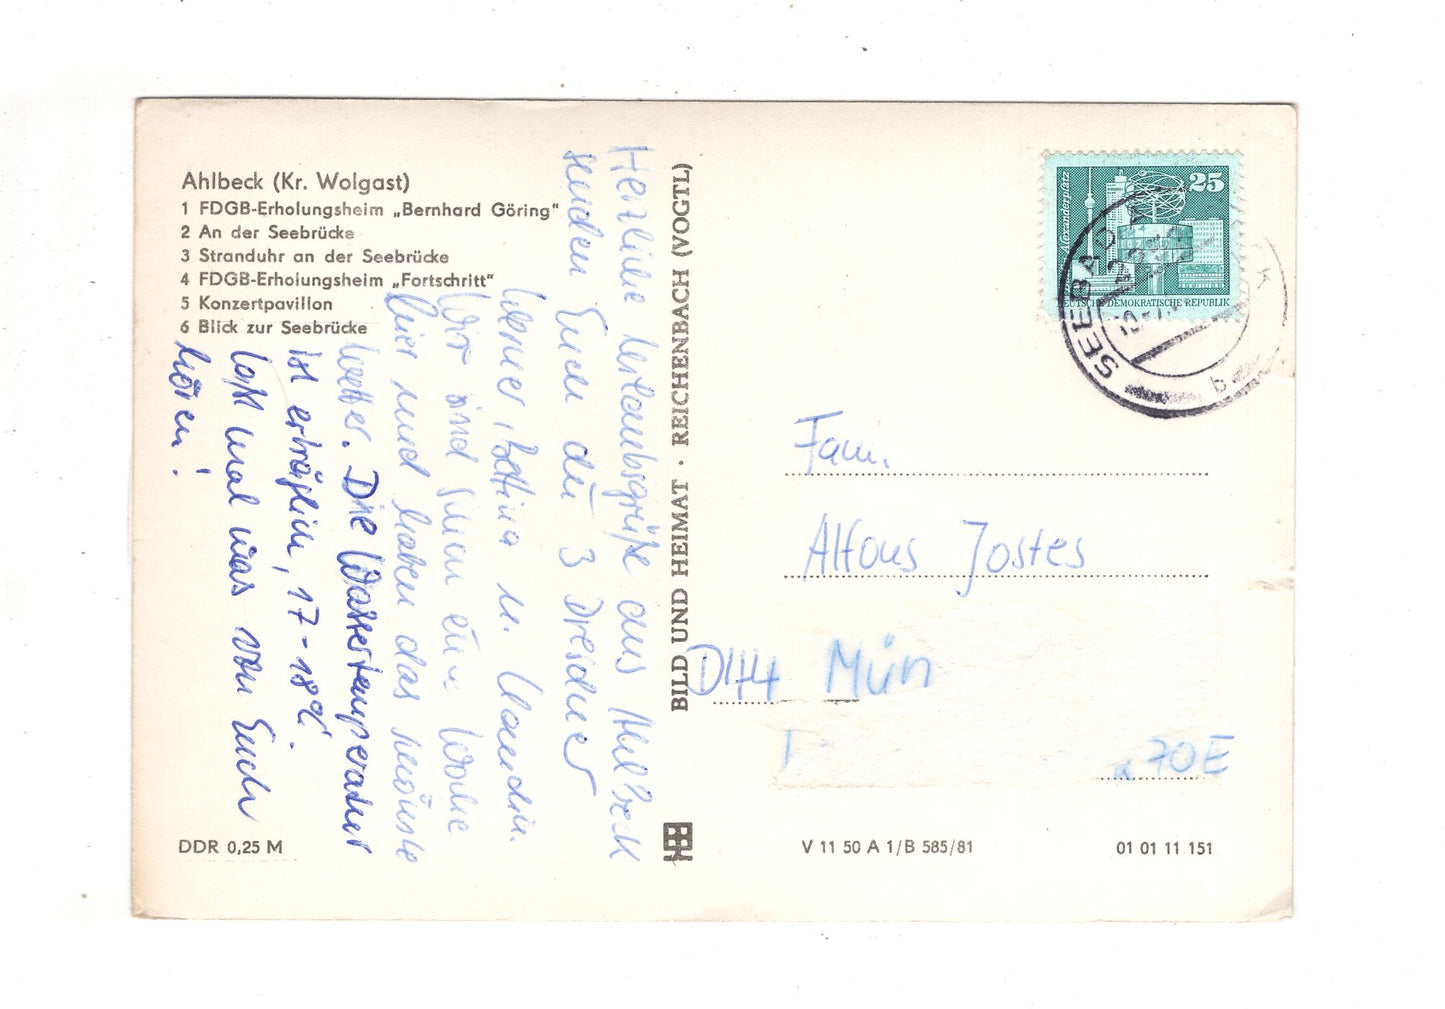 Ahlbeck (Kr. Wolgast)
1 FDGB-Erholungsheim „Bernhard Göring"
2 An der Seebrücke
3 Stranduhr an der Seebrücke
4 FDGB-Erholungsheim „Fortschritt"
5 Konzertpavillon
6 Blick zur Seebrücke
Herzliche Urlaubsgrüße aus Ahlbeck
senden Euch die 3 Dresdner
Werner, Bettina u. Claudia.
Wir sind schon eine Woche
hier und haben das schönste
Wetter. Die Wassertemperatur
ist erträglich, 17-18°C.
Laßt mal was von Euch
hören!
DDR 0,25 M
BILD UND HEIMAT · REICHENBACH (VOGTL)
25
Alexanderplatz
DEUTSCHE DEMOKRATISCHE REPUBLIK
SEEBAD
b
Fam.
Alfons Jostes
D 44 Mün
70E
V 11 50 A 1/B 585/81
01 01 11 151